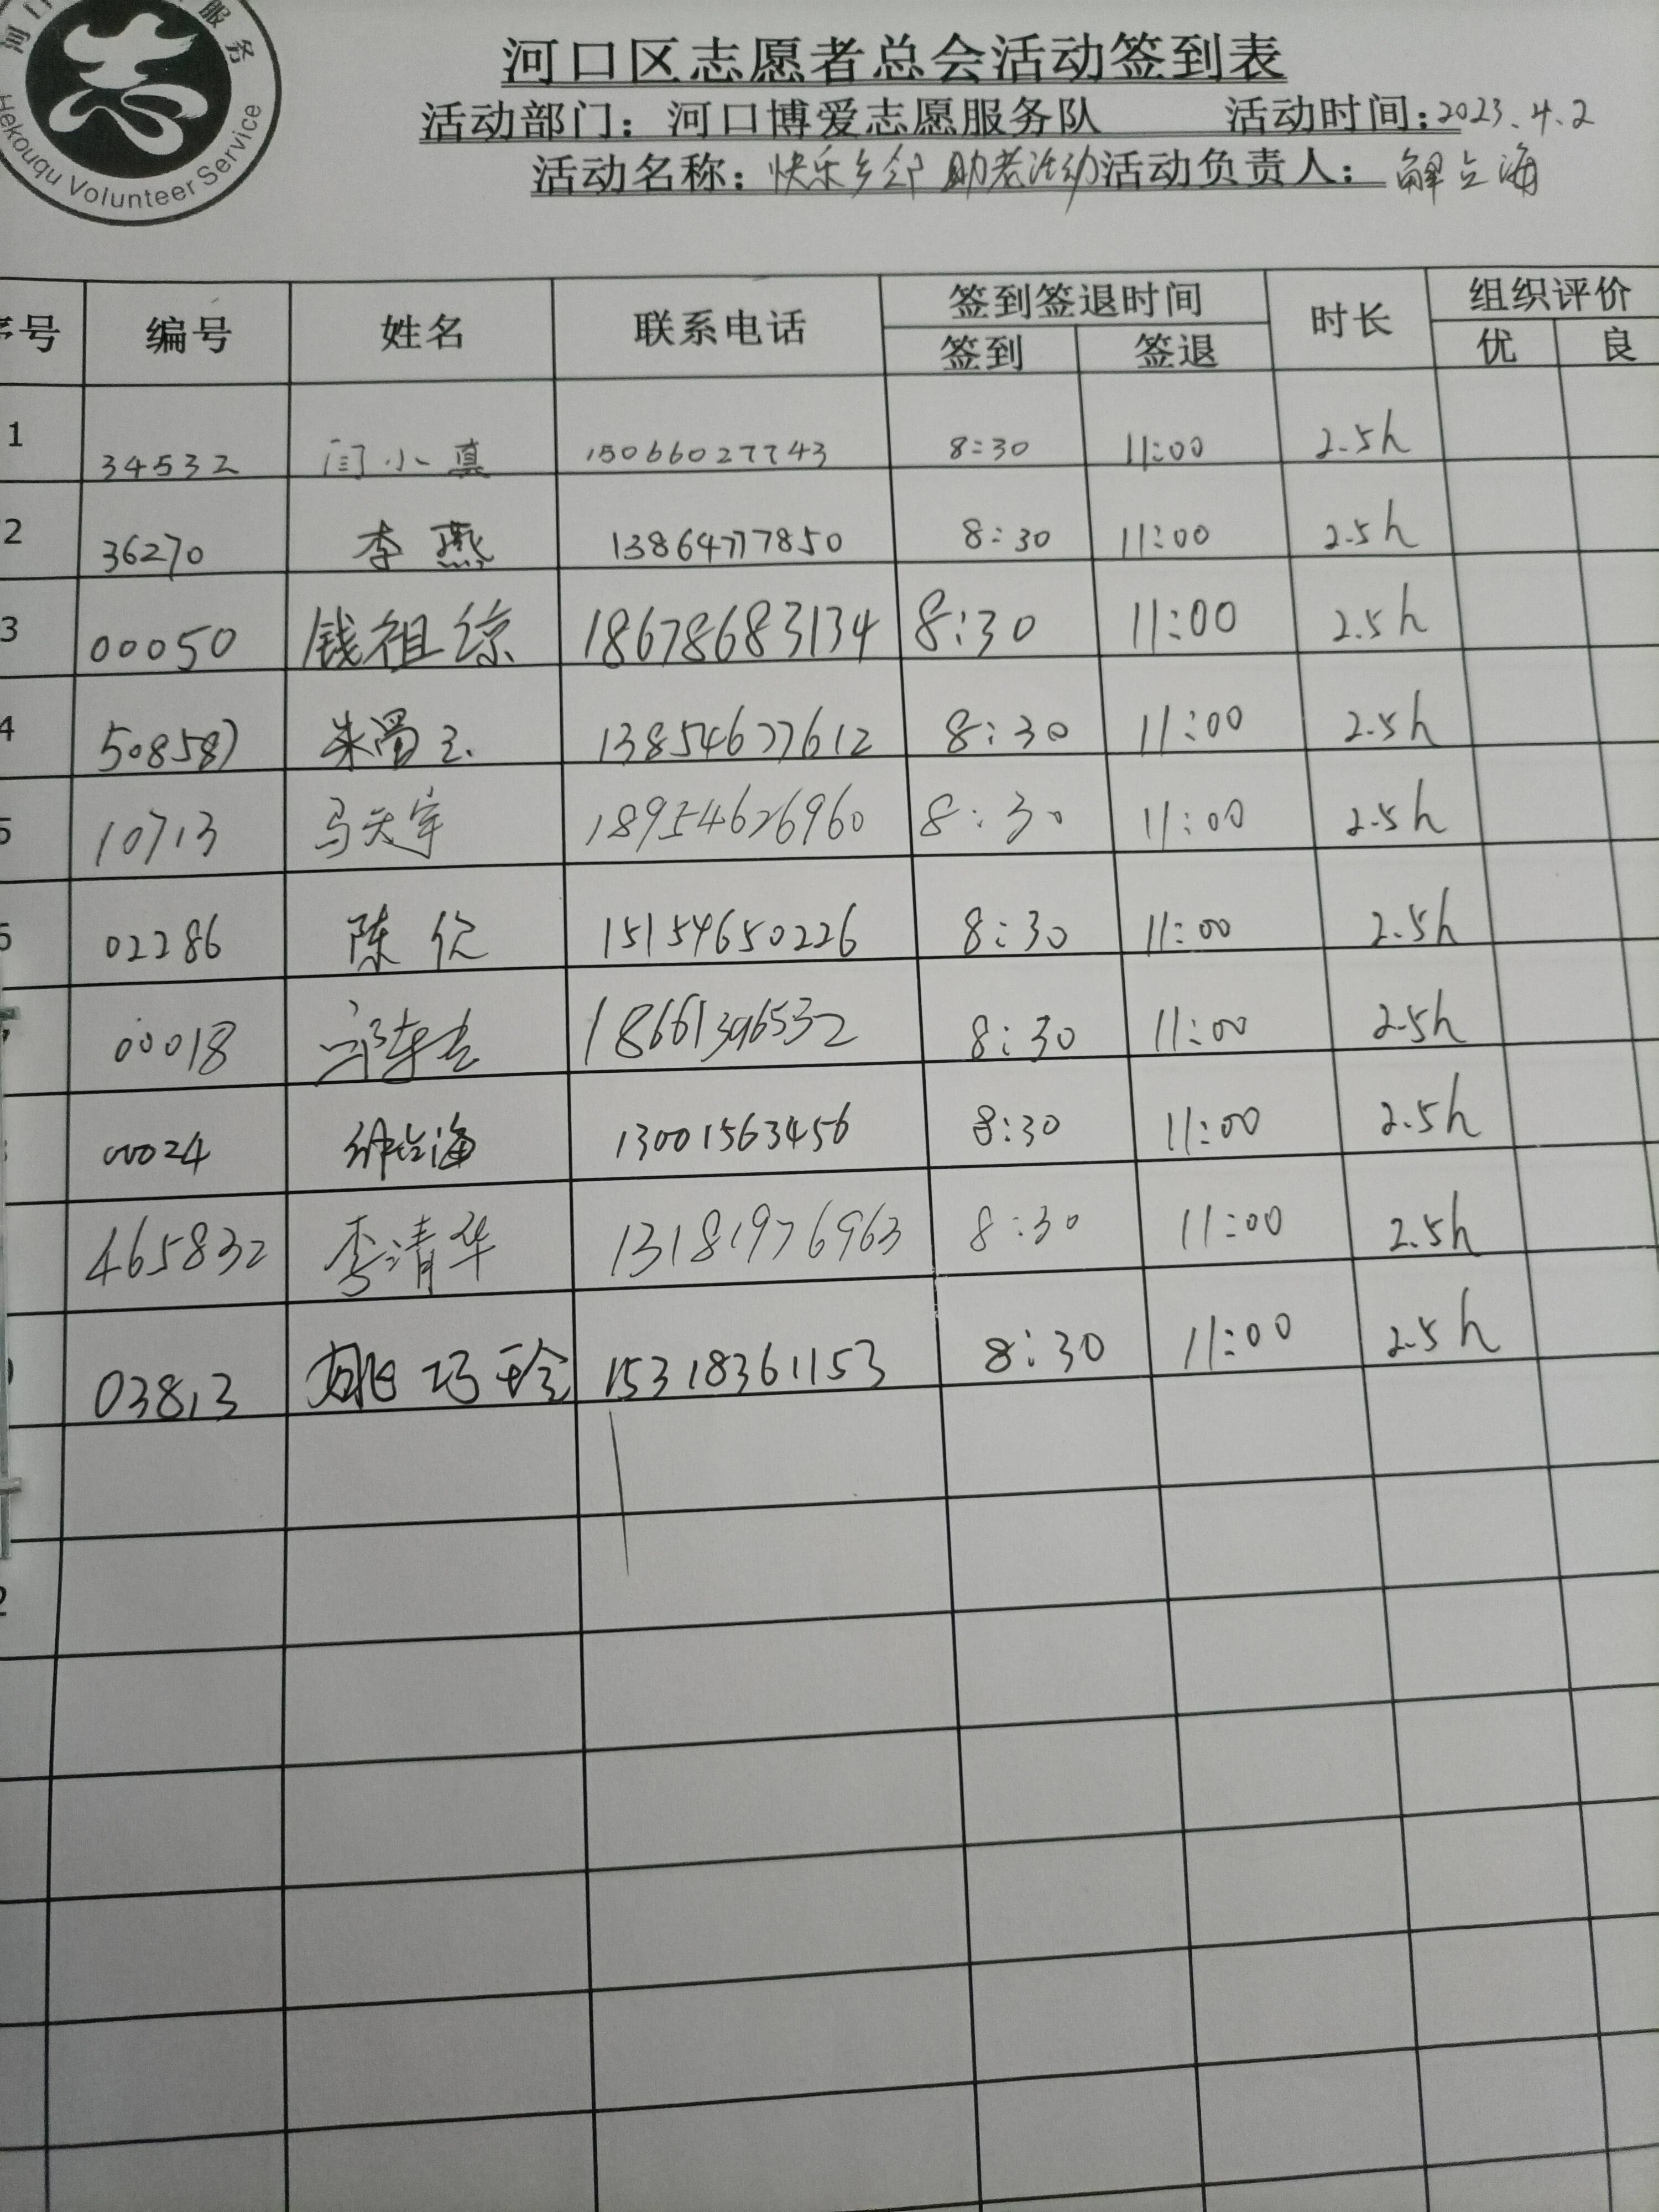 河口 服务
Hekouqu Volunteer Service
河口区志愿者总会活动签到表
活动部门：河口博爱志愿服务队 活动时间：2023.4.2
活动名称：快乐乡邻 助老活动 活动负责人：解立海
序号 编号 姓名 联系电话 签到签退时间 时长 组织评价
签到 签退 优 良
1 34532 闫小真 15066027743 8:30 11:00 2.5h
2 36270 李燕 13864777850 8:30 11:00 2.5h
3 00050 钱祖琼 18678683134 8:30 11:00 2.5h
4 508587 朱 13854677612 8:30 11:00 2.5h
5 10713 马天宇 18954626960 8:30 11:00 2.5h
02286 陈 15154650226 8:30 11:00 2.5h
00018 18661396532 8:30 11:00 2.5h
00024 解立海 13001563456 8:30 11:00 2.5h
465832 李清华 13181976963 8:30 11:00 2.5h
03813 姚巧玲 15318361153 8:30 11:00 2.5h
2